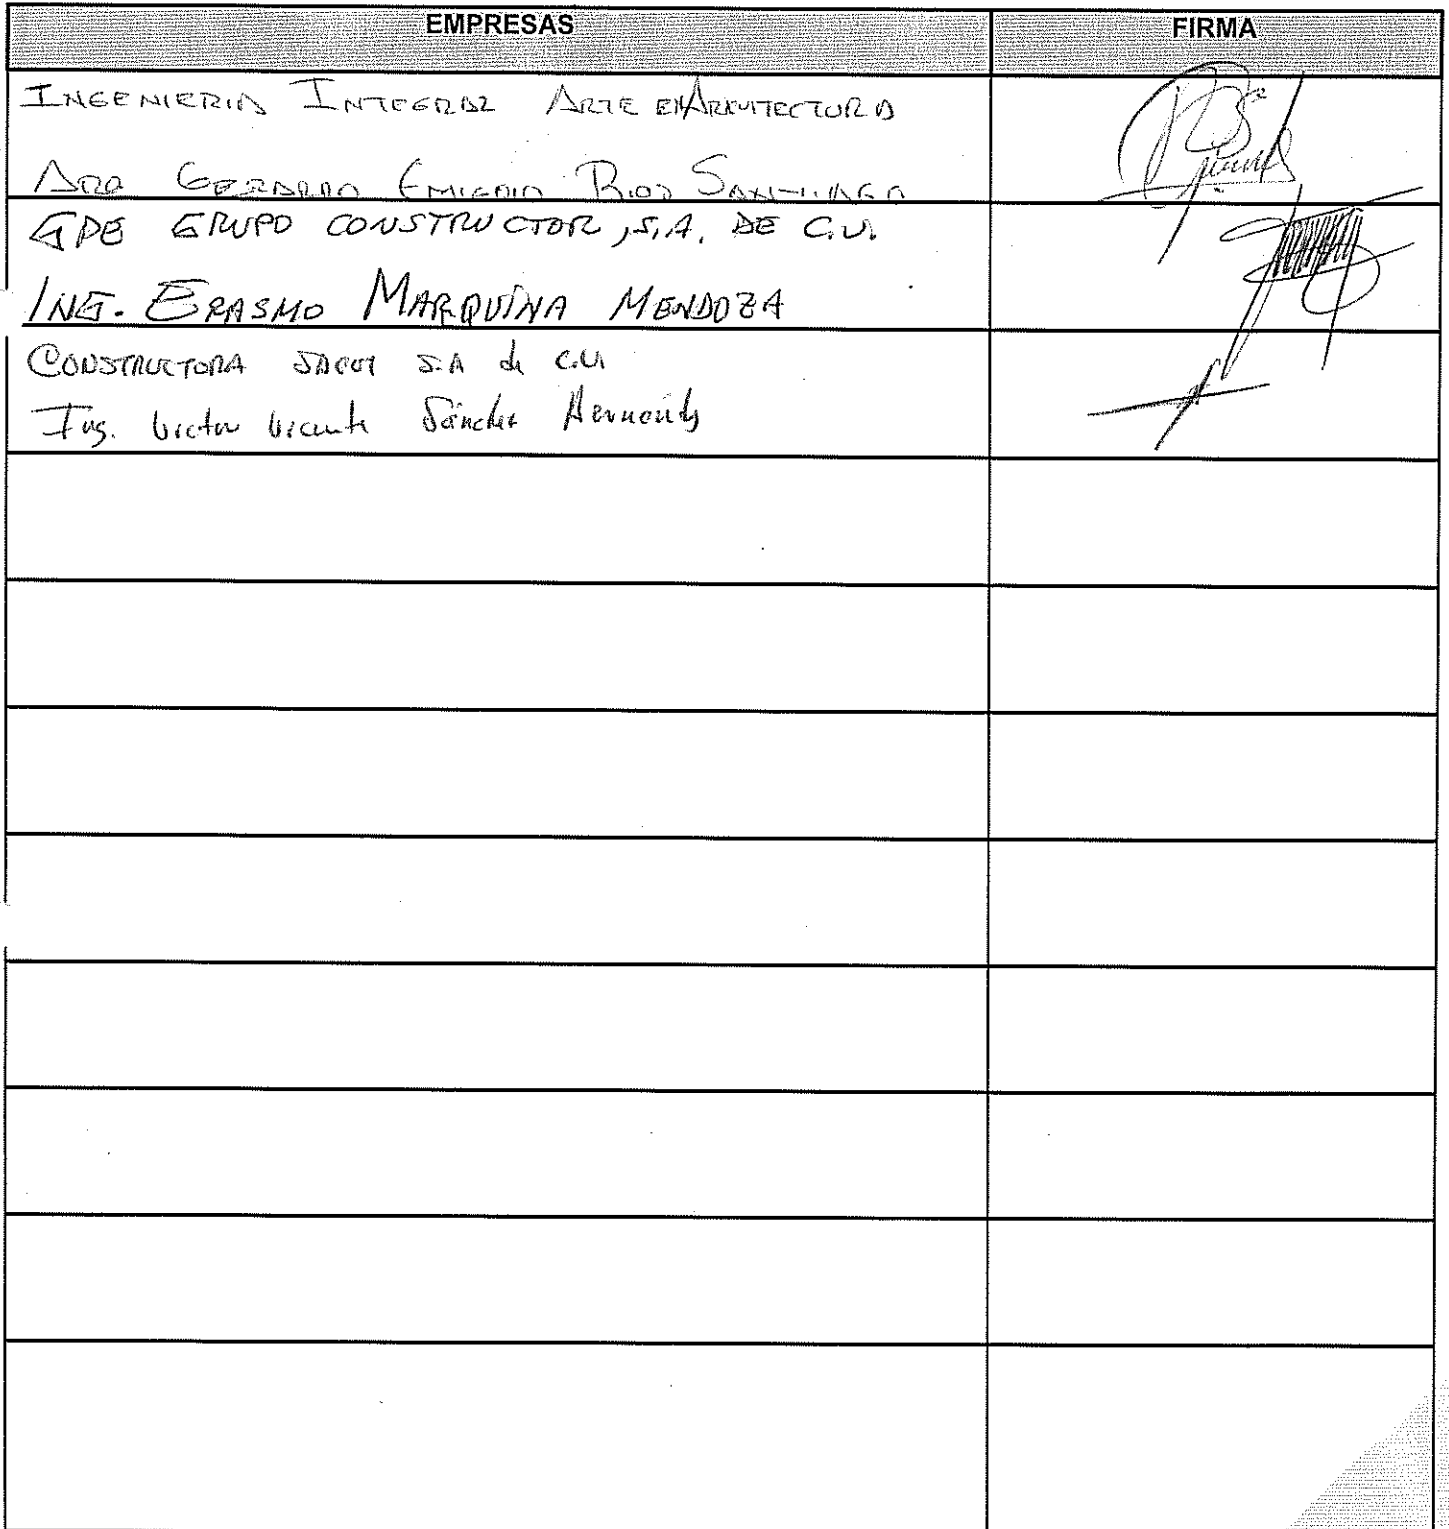 EMPRESAS FIRMA
INGENIERIA INTEGRAL ARTE EN ARKUITECTURA
ARQ GERARDO EMIGDIO RIOS SANTIAGO
GPE GRUPO CONSTRUCTOR, S.A. DE C.V.
ING. ERASMO MARQUINA MENDOZA
CONSTRUCTORA S.A de C.V.
Ing. Victor Vicente Sánchez Hernández